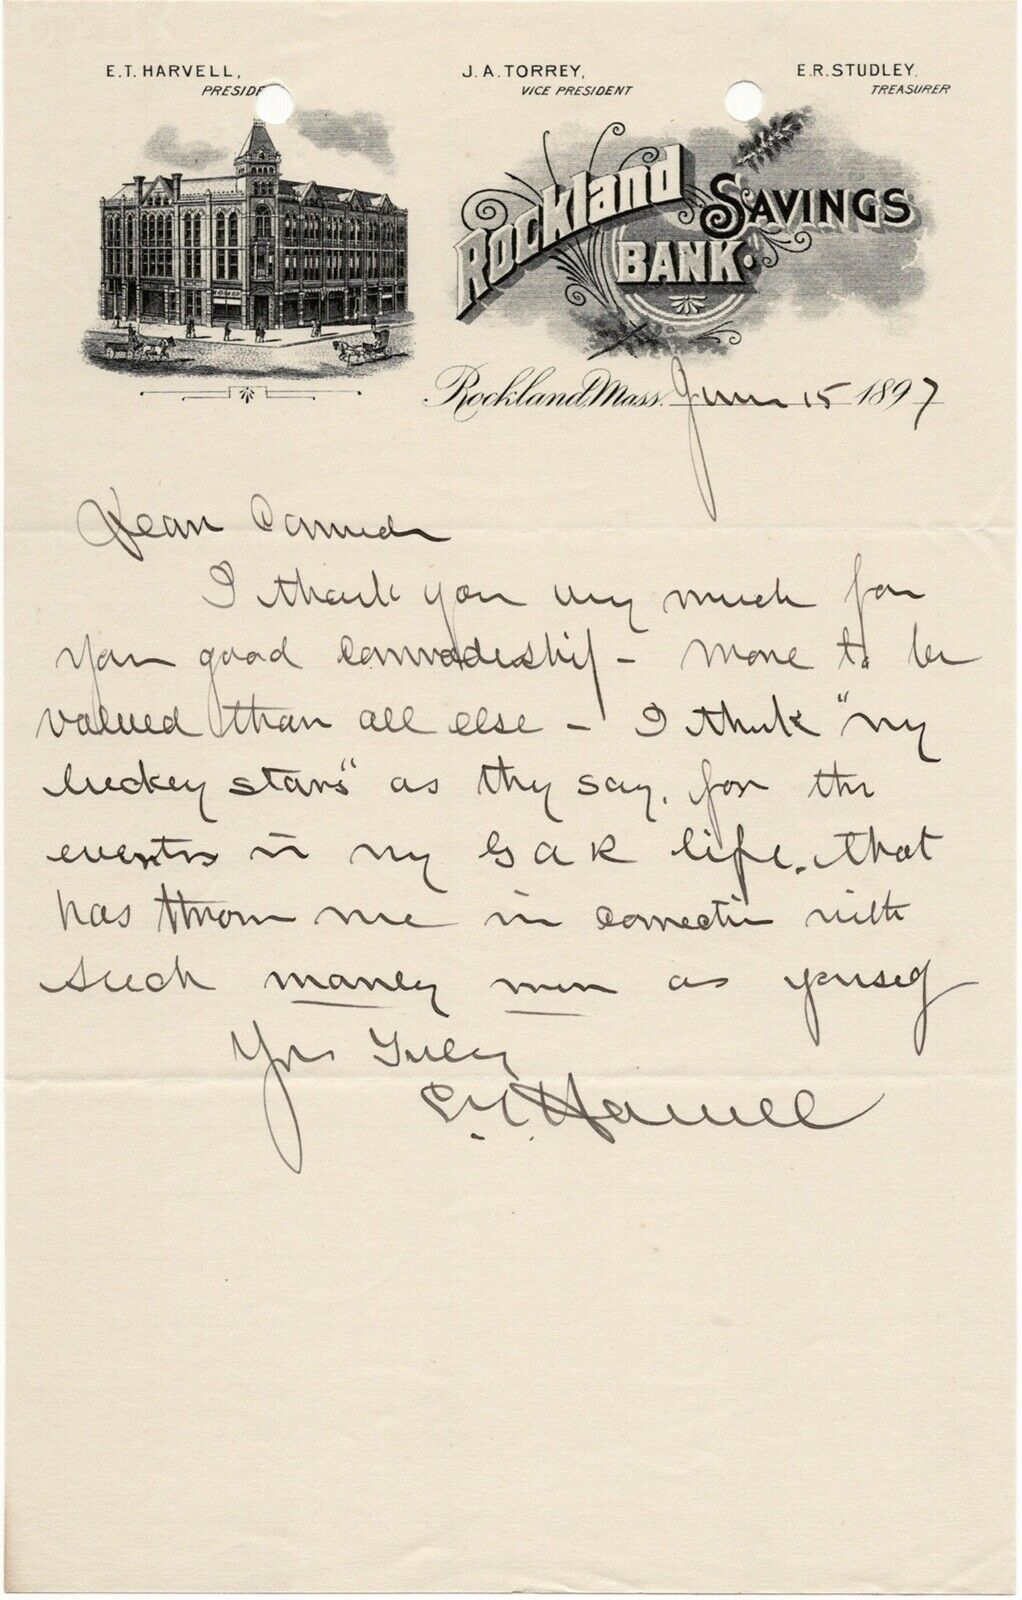 E.T. HARVELL,
PRESIDE
J.A. TORREY,
VICE PRESIDENT
E.R. STUDLEY,
TREASURER
Rockland SAVINGS
BANK.
Rockland, Mass. June 15 1897
Dear Comrade
I thank you very much for
your good comradeship - more to be
valued than all else - I thank "my
luckey stars" as they say, for the
events in my G A R life, that
has thrown me in connection with
such manley men as yourself
Yrs Truly
E. T. Harvell